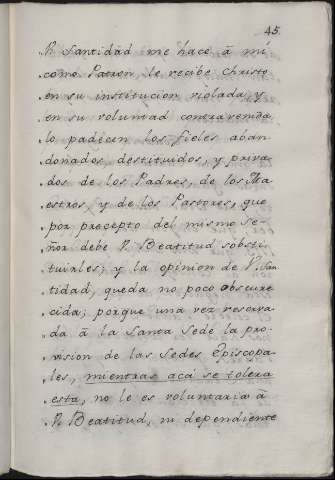 45.
V. Santidad me hace â mi
como Patron, le recibe Christo
en su institucion violada, y
en su voluntad contravenida
lo padecen los fieles aban
donados, destituidos, y priva
dos de los Padres, de los Ma
estros, y de los Pastores, que
por precepto del mismo Se-
ñor debe V. Beatitud sobsti-
tuirles; y la opinion de V. San
tidad, queda no poco obscure
cida; porque una vez reserva-
da â la Santa Sede la pro-
vision de las Sedes Episcopa-
les, mientras acá se tolera
esta, no le es voluntaria â
V. Beatitud, ni dependiente